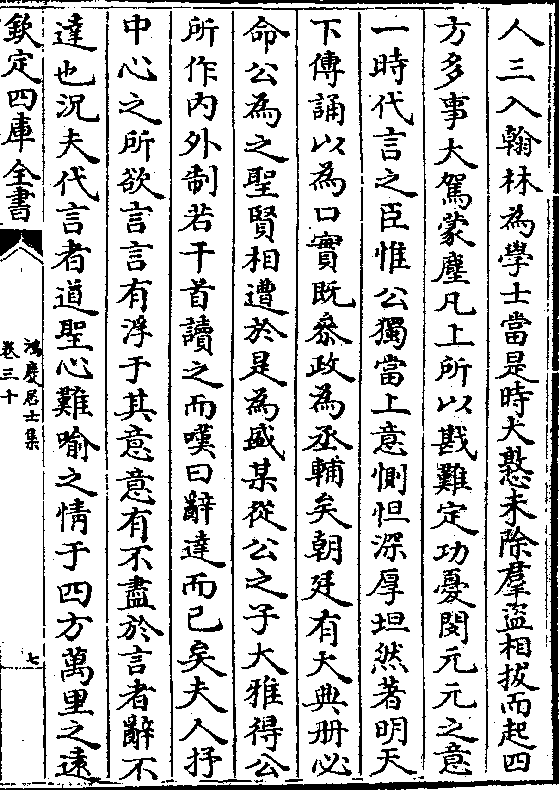 人三入翰林為學士當是時大憝未除羣盜相拔而起四
方多事大駕蒙塵凡上所以戡難定功憂閔元元之意
一時代言之臣惟公獨當上意惻怛深厚坦然著明天
下傳誦以為口實既叅政為丞輔矣朝廷有大典册必
命公為之聖賢相遭於是為盛某從公之子大雅得公
所作内外制若干首讀之而嘆曰辭達而已矣夫人抒
中心之所欲言言有浮于其意意有不盡於言者辭不
達也況夫代言者道聖心難喻之情于四方萬里之遠
欽定四庫全書
鴻慶居士集
卷三十
七